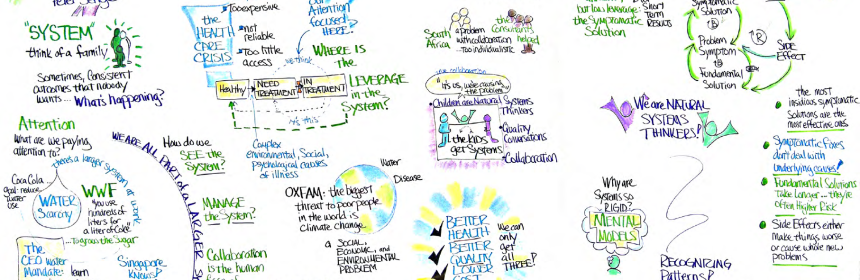 "SYSTEM"
think of a family
Sometimes, Consistent
outcomes that nobody
wants... What's happening?
Attention
What are we paying
attention to?
there's a larger system at work
Coca Cola
goal: reduce
water
use
WATER
Scarcity
WWF
"You use
hundreds of
liters for
a liter of Coke"
...to grow the Sugar
The
CEO Water
Mandate:
learn
Singapore
knows!
WE ARE ALL PART of a LARGER
the
HEALTH
CARE
CRISIS
Too expensive
not
reliable
Too little
access
Our
Attention
focused
HERE?
WHERE IS
the
LEVERAGE
in the
System?
Healthy
NEED
TREATMENT
IN
TREATMENT
Complex
environmental, Social,
psychological causes
of illness
How do we
SEE the
System?
MANAGE
the System?
Collaboration
is the human
OXFAM: the biggest
threat to poor people
in the world is
climate change
a SOCIAL,
ECONOMIC, and
ENVIRONMENTAL
PROBLEM
Water
Disease
South
Africa
a problem
with collaboration
... too individualistic
the
Consultants
helped
"It's us, we're causing
the problem"
Children are Natural Systems
Thinkers
the kids
get Systems
Quality
Conversations
Collaboration
BETTER
HEALTH
BETTER
QUALITY
LOWER
COST
We can
only
get
all
THREE?
the Symptomatic
Solution
Short
Term
RESULTS
Symptomatic
Solution
R
Problem
Symptom
Fundamental
Solution
R
SIDE
EFFECT
We are NATURAL
SYSTEMS
THINKERS!
Why are
Systems so
RIGID?
MENTAL
MODELS
RECOGNIZING
Patterns!
the most
insidious symptomatic
Solutions are the
most effective ones.
Symptomatic Fixes
don't deal with
underlying causes!
Fundamental Solutions
Take Longer... they're
often Higher Risk
Side Effects either
make things worse
or cause whole new
problems